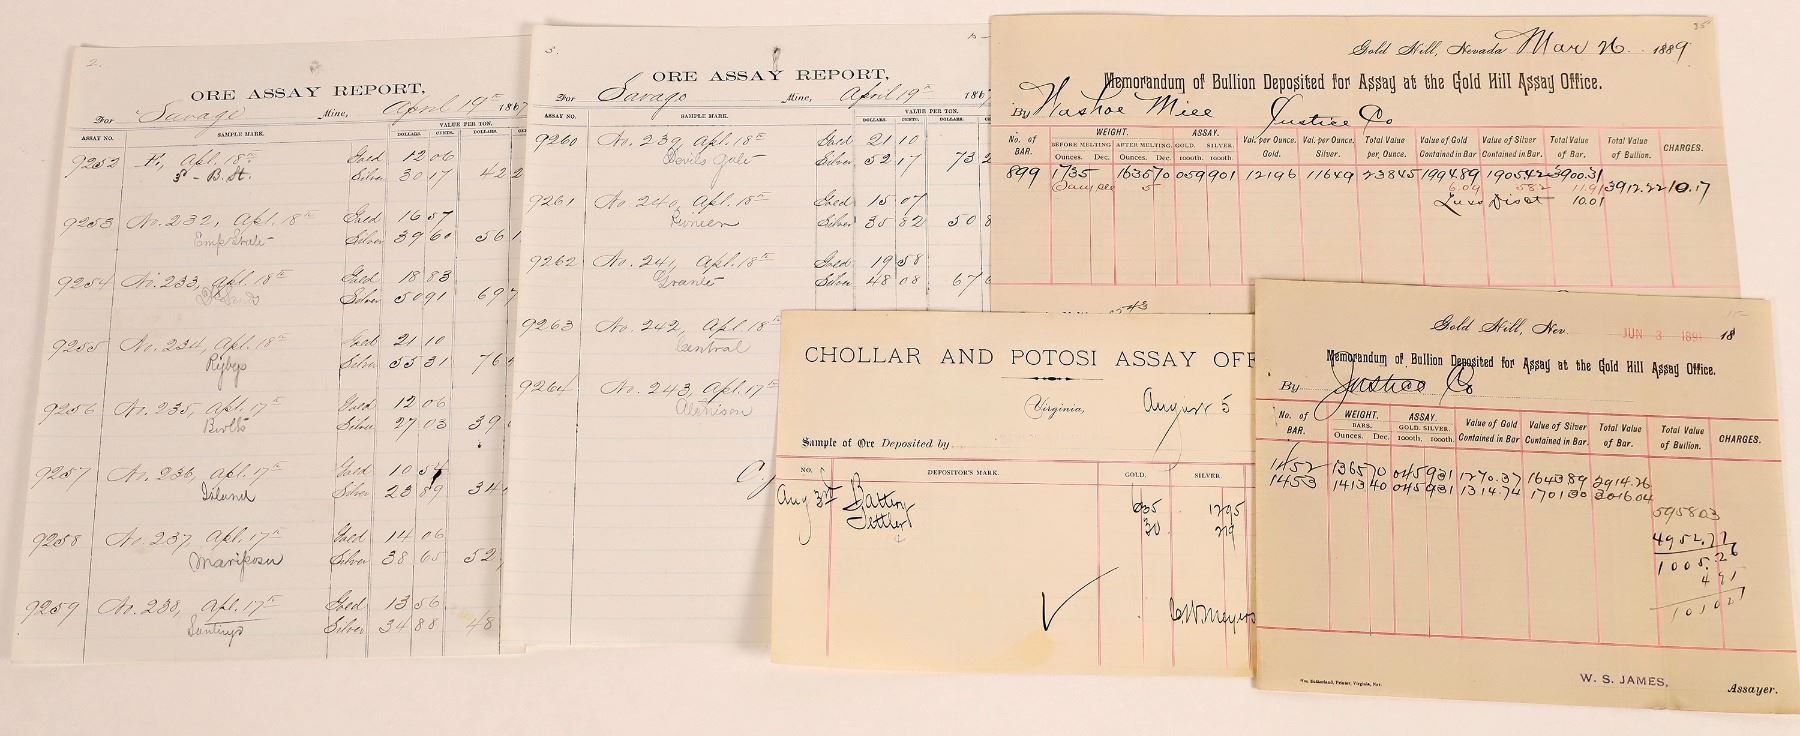 2.
ORE ASSAY REPORT,
For Savage Mine, April 19th 1867
ASSAY NO. SAMPLE MARK. VALUE PER TON.
DOLLARS. CENTS. DOLLARS.
9252 Apl. 18th Gold 12 06
5 - B. St. Silver 30 17 42 2
9253 No. 232, Apl. 18th Gold 16 57
Silver 39 60 56 1
9254 No. 233, Apl. 18th Gold 18 83
Silver 50 91 69 7
9255 No. 234, Apl. 18th Gold 21 10
Silver 55 31 76
9256 No. 235, Apl. 17th Gold 12 06
Silver 27 03 39
9257 No. 236, Apl. 17th Gold 10 54
Island Silver 23 89 34
9258 No. 237, Apl. 17th Gold 14 06
Mariposa Silver 38 65 52
9259 No. 238, Apl. 17th Gold 13 56
Silver 34 88 48
3.
ORE ASSAY REPORT,
For Savage Mine, April 19th 1867
ASSAY NO. SAMPLE MARK. VALUE PER TON.
DOLLARS. CENTS. DOLLARS.
9260 No. 239, Apl. 18th Gold 21 10
Devils Gate Silver 52 17 73 2
9261 No. 240, Apl. 18th Gold 15 07
Pioneer Silver 35 82 50 8
9262 No. 241, Apl. 18th Gold 19 58
Granite Silver 48 08 67 6
9263 No. 242, Apl. 18th
Central
9264 No. 243, Apl. 17th
35
Gold Hill, Nevada Mar 26 1889
Memorandum of Bullion Deposited for Assay at the Gold Hill Assay Office.
By Washoe Mill Justice Co
No. of BAR. WEIGHT. ASSAY. Val. per Ounce. Gold. Val. per Ounce. Silver. Total Value per, Ounce. Value of Gold Contained in Bar Value of Silver Contained in Bar. Total Value of Bar. Total Value of Bullion. CHARGES.
BEFORE MELTING AFTER MELTING. GOLD. SILVER.
Ounces. Dec. Ounces. Dec. 1000th. 1000th.
899 1735 1635 70 059 901 1 2196 1 1649 2 3845 1994.89 1905.42 3900.31
Sample 5 6.09 5.82 11.91 3912.22 10.17
10.01
CHOLLAR AND POTOSI ASSAY OFF
Virginia, August 5
Sample of Ore Deposited by
NO. DEPOSITOR'S MARK. GOLD. SILVER
Aug 3rd Battery 635 1295
Settler 30 219
C.W. Meyers
Gold Hill, Nev. JUN 3 1891 18
Memorandum of Bullion Deposited for Assay at the Gold Hill Assay Office.
By Justice Co
No. of BAR. WEIGHT. ASSAY. Value of Gold Contained in Bar Value of Silver Contained in Bar. Total Value of Bar. Total Value of Bullion. CHARGES.
BARS. GOLD. SILVER.
Ounces. Dec. 1000th. 1000th.
1452 1365 70 045 931 1270.37 1643 89 2914.26
1453 1413 40 045 931 1314.74 1701 30 3016.04
5958 03
4952.77
1005.26
4 95
1010 21
Wm. Sutherland, Printer, Virginia, Nev.
W. S. JAMES,
Assayer.